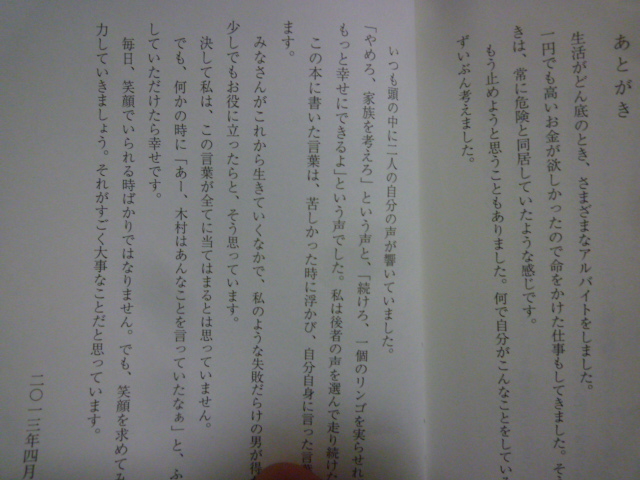 あとがき
生活がどん底のとき、さまざまなアルバイトをしました。
一円でも高いお金が欲しかったので命をかけた仕事もしてきました。そ
きは、常に危険と同居していたような感じです。
もう止めようと思うこともありました。何で自分がこんなことをしている
ずいぶん考えました。
いつも頭の中に二人の自分の声が響いていました。
「やめろ、家族を考えろ」という声と、「続けろ、一個のリンゴを実らせれ
もっと幸せにできるよ」という声でした。私は後者の声を選んで走り続けた
この本に書いた言葉は、苦しかった時に浮かび、自分自身に言った言葉
ます。
みなさんがこれから生きていくなかで、私のような失敗だらけの男が得た
少しでもお役に立ったらと、そう思っています。
決して私は、この言葉が全てに当てはまるとは思っていません。
でも、何かの時に「あー、木村はあんなことを言っていたなぁ」と、ふ
していただけたら幸せです。
毎日、笑顔でいられる時ばかりではなりません。でも、笑顔を求めてみ
力していきましょう。それがすごく大事なことだと思っています。
二〇一三年四月